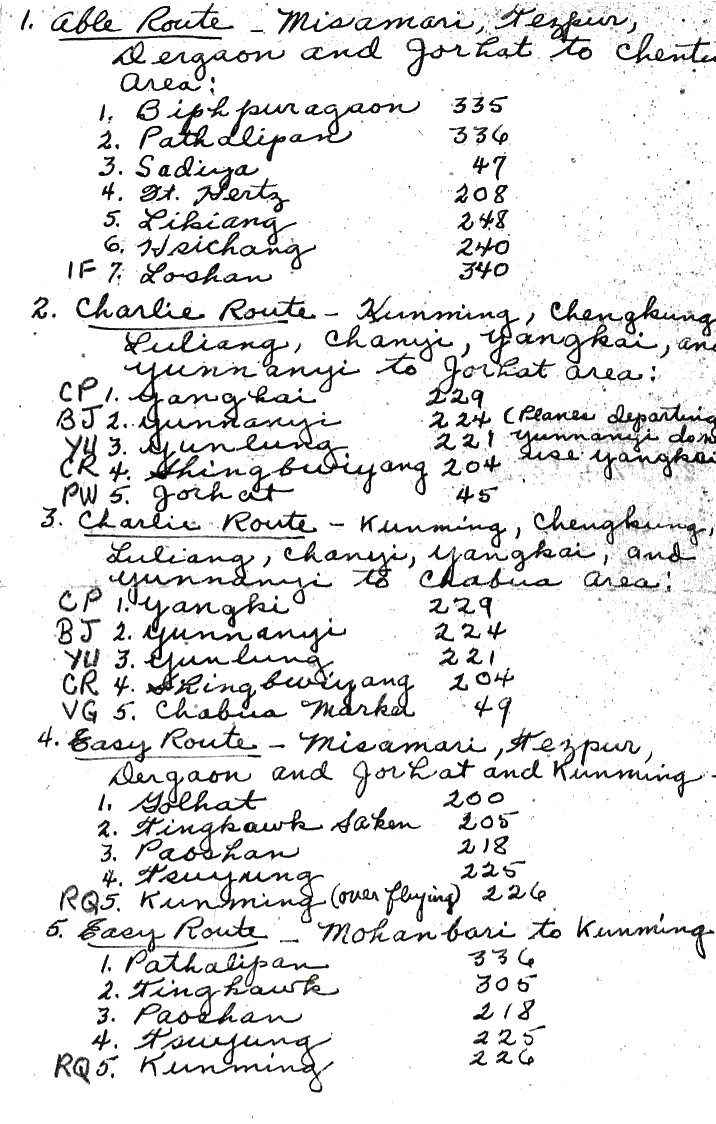 1. Able Route - Misamari, Tezpur,
Dergaon and Jorhat to Chentu
area:
1. Biphpuragaon 335
2. Pathalipan 336
3. Sadiya 47
4. Ft. Hertz 208
5. Likiang 248
6. Hsichang 240
IF 7. Loshan 340
2. Charlie Route - Kunming, Chengkung
Luliang, Chanyi, Yangkai, and
Yunnanyi to Jorhat area:
CP 1. Yangkai 229
BJ 2. Yunnanyi 224 (Planes departing
YU 3. Yunlung 221 Yunnanyi don
CR 4. Shingbwiyang 204 use Yangkai
PW 5. Jorhat 45
3. Charlie Route - Kunming, Chengkung,
Luliang, Chanyi, Yangkai, and
Yunnanyi to Chabua area:
CP 1. Yangki 229
BJ 2. Yunnanyi 224
YU 3. Yunlung 221
CR 4. Shingbwiyang 204
VG 5. Chabua Marker 49
4. Easy Route - Misamari, Tezpur,
Dergaon and Jorhat and Kunming -
1. Golhat 200
2. Tingkawk Saken 205
3. Paoshan 218
4. Tsuyung 225
RQ 5. Kunming (over flying) 226
5. Easy Route - Mohanbari to Kunming
1. Pathalipan 336
2. Tingkawk 305
3. Paoshan 218
4. Tsuyung 225
RQ 5. Kunming 226